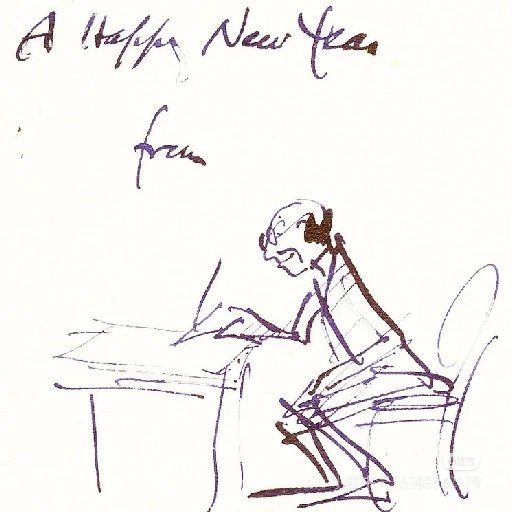 A Happy New Year
from